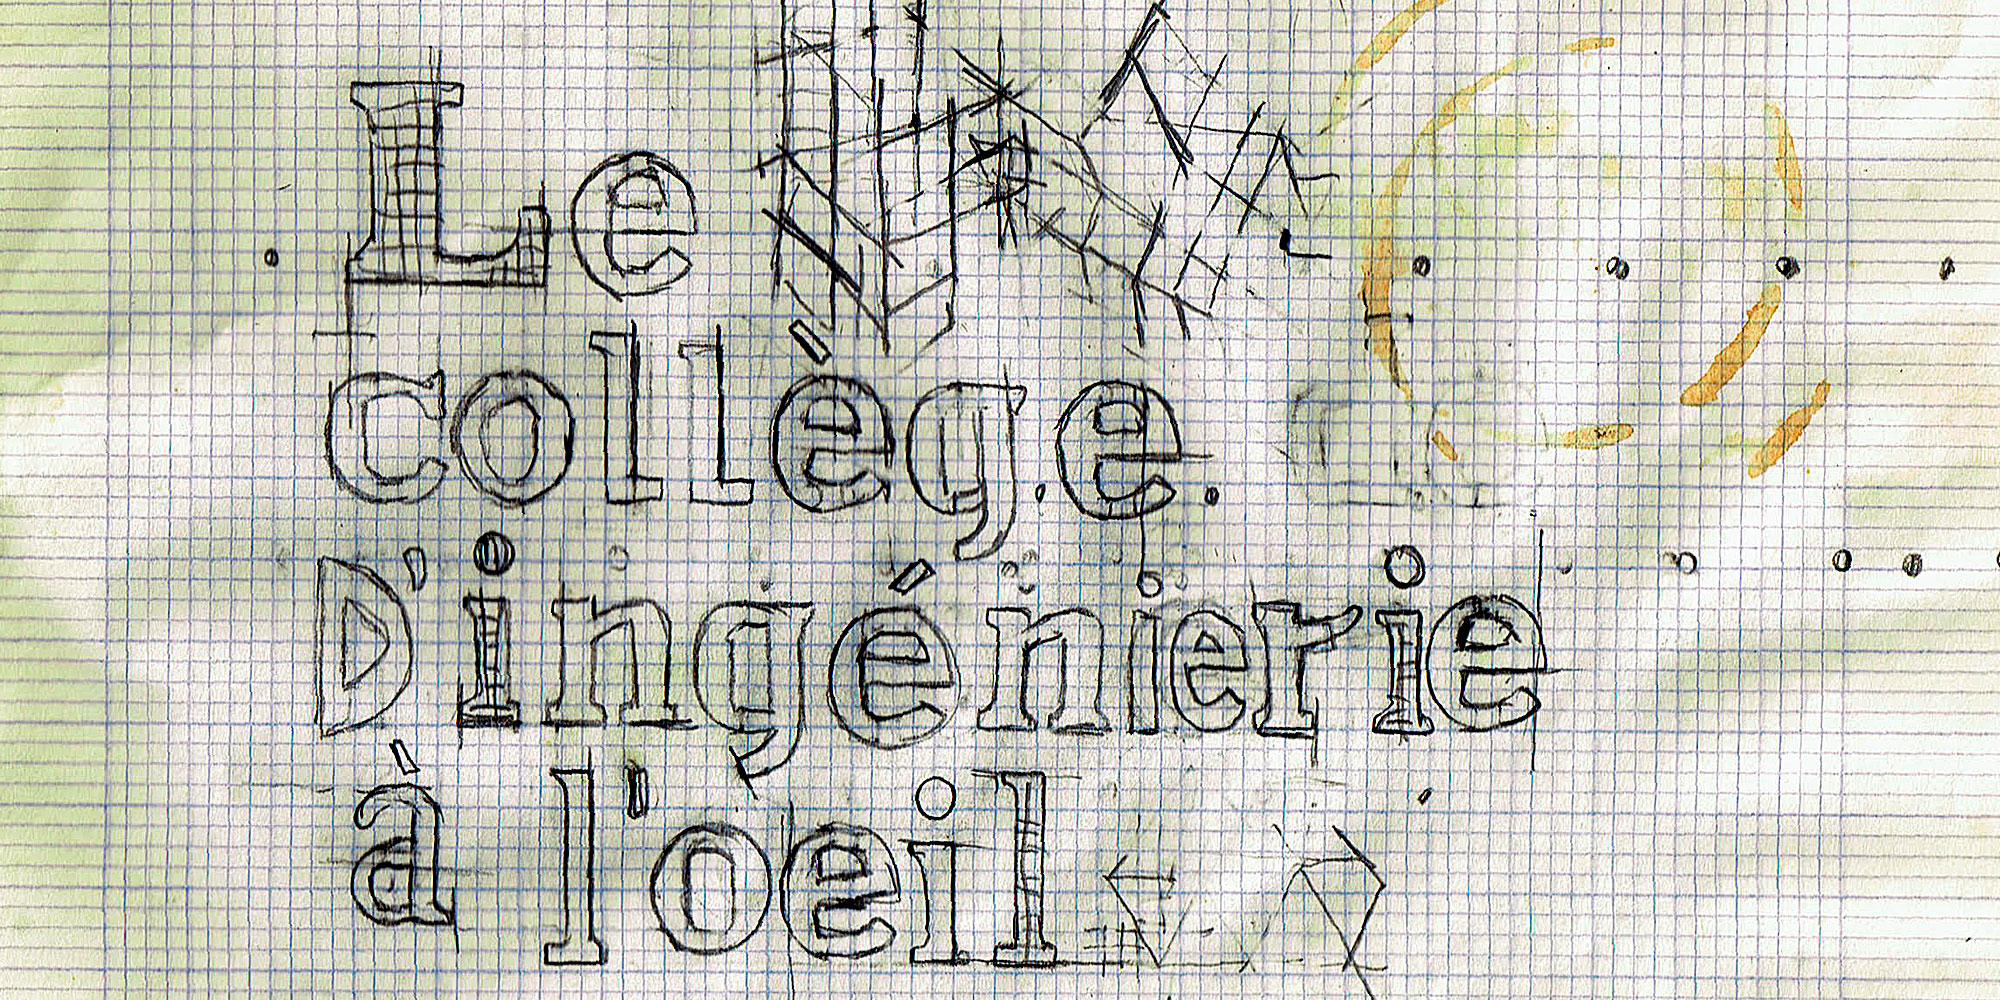 Le
collèg.e.
D'ingénierie
à l'oeil